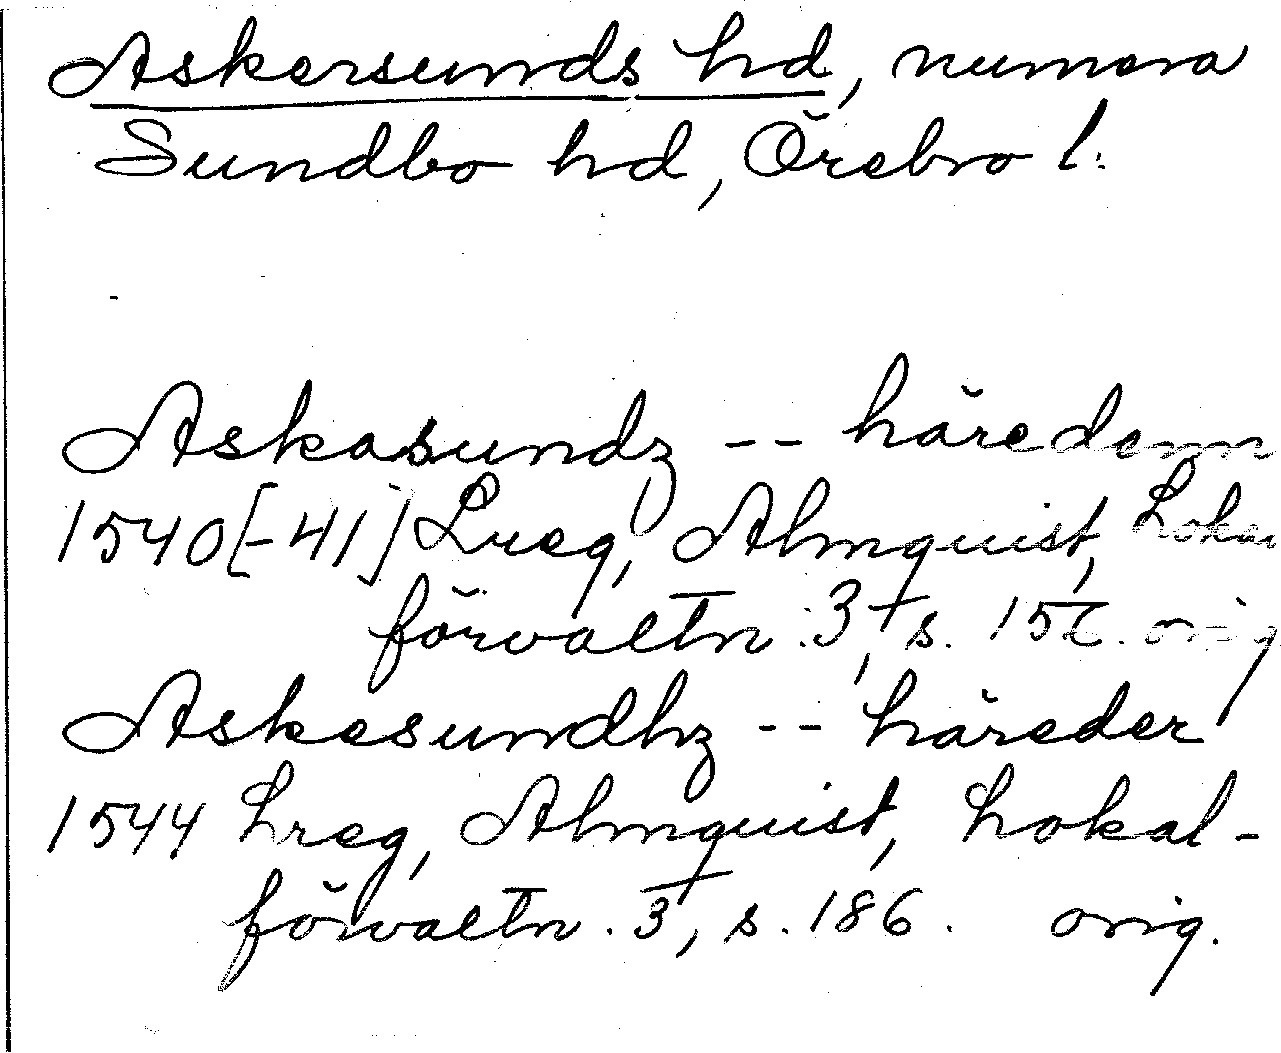 Askersunds hd, numera
Sundbo hd, Örebro l.
Askasundz -- häredenn
1540[-41] Lreg, Almquist, Lokal
förvaltn. 3, s. orig
Askesundhz -- häreder
1544 Lreg, Almquist, Lokal-
förvaltn. 3, s. 186. orig.